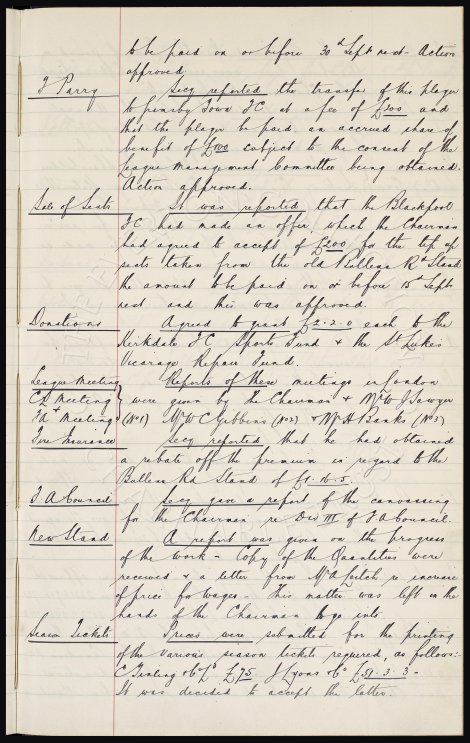 to be paid on or before 30th Sept next - Action
approved.
F Parry
Secy reported the transfer of this player
to Grimsby Town FC at a fee of £300 and
that the player be paid an accrued share of
benefit of £100 subject to the consent of the
League Management Committee being obtained.
Action approved.
Sale of Seats
It was reported that the Blackpool
FC had made an offer, which the Chairman
had agreed to accept of £200 for the tip up
seats taken from the old Bullens Rd Stand
the amount to be paid on or before 15th Sept
next and this was approved.
Donations
Agreed to grant £2.2.0 each to the
Kirkdale FC Sports Fund & the St Lukes
Vicarage Repair Fund.
League Meeting
Reports of these meetings in London
CL Meeting
were given by the Chairman & Mr W J Sawyer
FA Meeting
(No 1) Mr W C Gibbins (No 2) & Mr H Banks (No 3)
Fire Insurance
Secy reported that he had obtained
a rebate off the premium in regard to the
Bullens Rd Stand of £9.16.5.
F A Council
Secy gave a report of the canvassing
for the Chairman re Div III of F A Council.
New Stand
A report was given on the progress
of the work - Copy of the Quantities were
received & a letter from Mr A Leitch re increase
of price for wages - This matter was left in the
hands of the Chairman to go into.
Season Tickets
Prices were submitted for the printing
of the various season tickets required, as follows:
C Tinling & Co Ld £75. J Lyons & Co £51.3.3 -
It was decided to accept the latter.